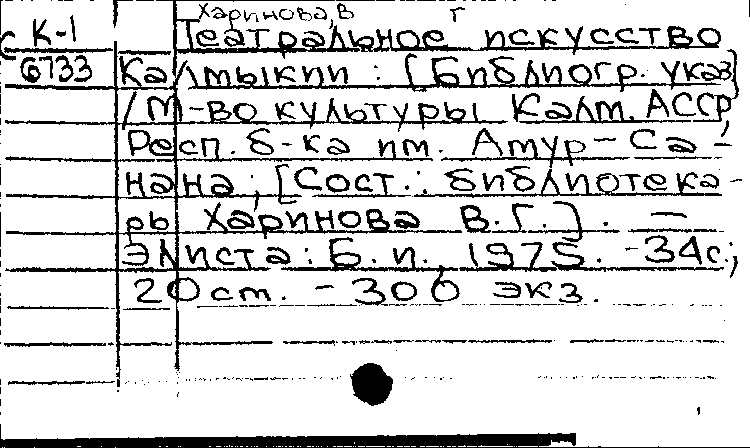 Харинова, В г
К-1 Театральное искусство
с 6733 Калмыкии : [Библиогр. указ]
/М-во культуры Калм. АССР,
Респ. б-ка им. Амур-Са-
нана ; [Сост.: библиотека-
рь Харинова В.Г.]. —
Элиста : Б. и., 1975. -34с.;
20 ст. - 300 экз.